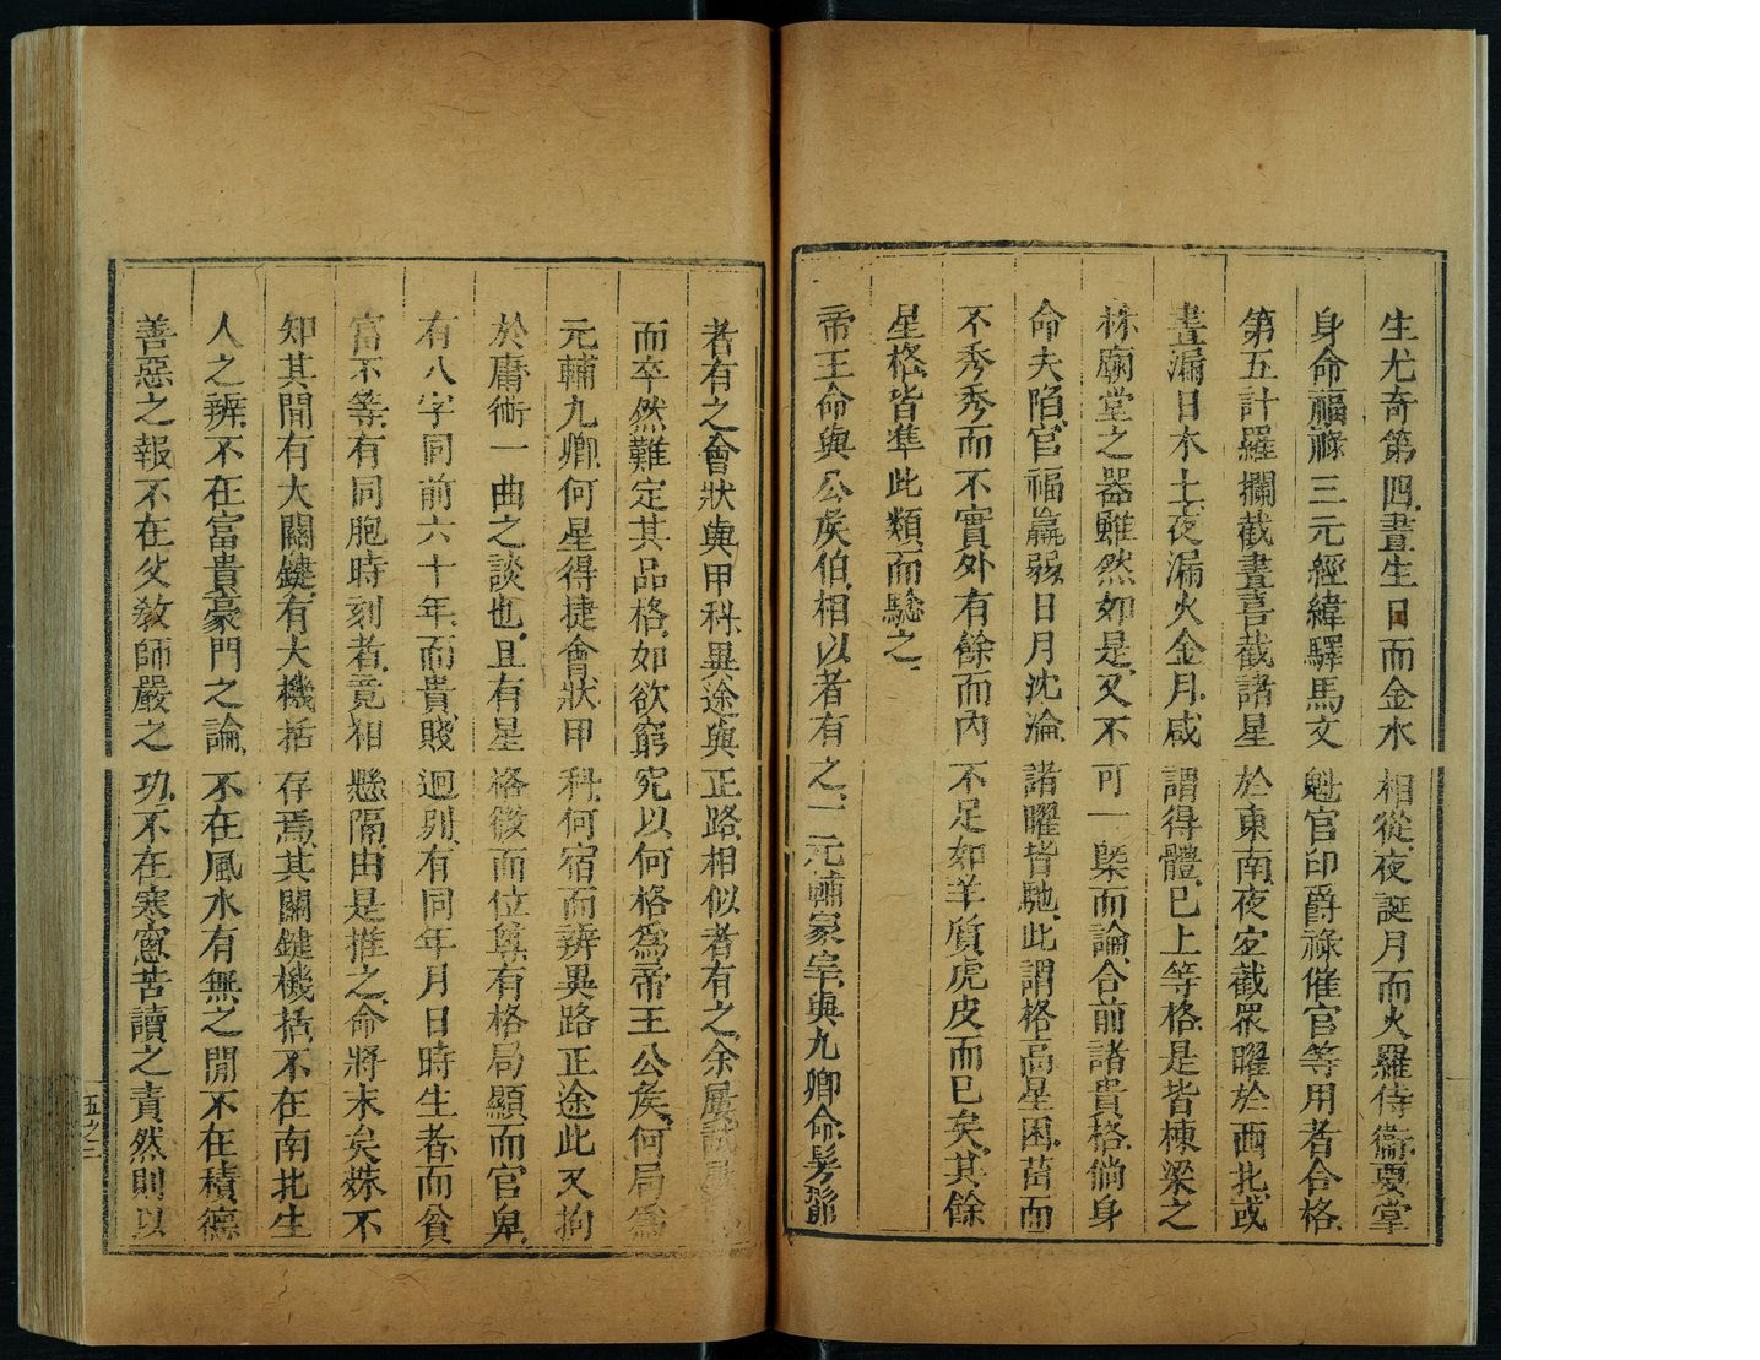 生尤奇第四晝生日而金水相從夜誕月而火羅侍衞要掌
身命福祿三元經緯驛馬文魁官印爵祿催官等用者合格
第五計羅攔截晝喜截諸星於東南夜宜截眾曜於西北或
晝漏日木土夜漏火金月咸謂得體已上等格是皆棟梁之
林廟堂之器雖然如是又不可一槩而論合前諸貴格倘身
命失陷官福羸弱日月沈淪諸曜皆馳此謂格高星困苗而
不秀秀而不實外有餘而內不足如羊質虎皮而已矣其餘
星格皆準此類而騐之
帝王命與公矦伯相似者有之一元輔冢宰與九卿命髣髴
者有之會狀與甲科異途與正路相似者有之余屢試
而卒然難定其品格如欲窮究以何格爲帝王公矦何局爲
元輔九卿何星得捷會狀甲科何宿而辨異路正途此又拘
於庸術一曲之談也且有星格微而位尊有格局顯而官卑
有八字同前六十年而貴賤迥別有同年月日時生者而貧
富不等有同胞時刻者竟相懸隔由是推之命將末矣殊不
知其閒有大關鍵有大機括存焉其關鍵機括不在南北生
人之辨不在富貴豪門之論不在風水有無之閒不在積德
善惡之報不在父敎師嚴之功不在寒窻苦讀之責然則以
五之三